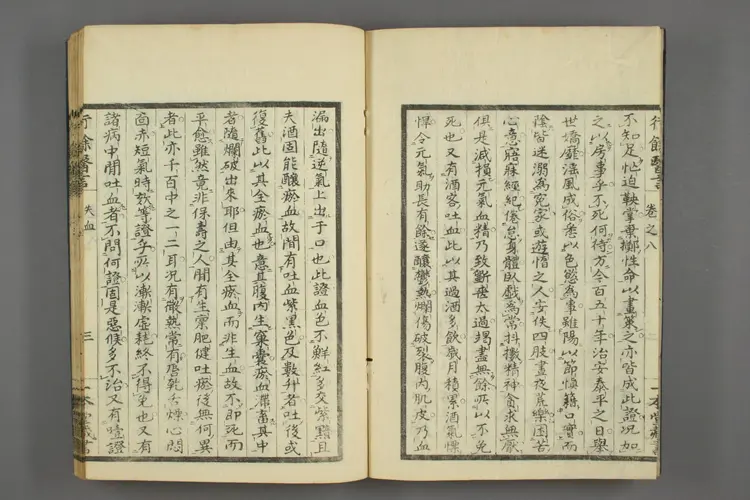 行餘醫言 卷之八
不知足忙迫鞅掌棄擲性命以畫策之亦皆成此證況如
之以房事乎不死何待方今百五十年治安泰平之日舉
世嬌靡淫風成俗矣以色慾為事雖陽以節慎藉口實而
陰皆迷溺為冤家或遊惰之人安佚四肢晝夜荒樂困苦
心意寤寐經紀倦怠身體臥戲為常抖擻精神貪求無厭
但是減損元氣血精乃致斷喪太過竭盡無餘所以不免
死也又有酒客吐血此以其過酒多飲歲月積累酒氣慓
悍令元氣助長有餘遂釀鬱熱爛傷破裂腹內肌皮乃血
漏出隨逆氣上出于口也此證血色不鮮紅多交紫黯且
夫酒固能釀瘀血故間有吐血紫黑色及數升者吐後或
復舊此以其全瘀血也意其腹內生窠囊瘀血滯畜其中
者隨爛破出來耶但由其全瘀血而非生血故不即死而
平愈雖然竟非保壽之人間有生稟肥健吐瘀後無何異
者此亦千百中之一二耳況有微熱常有唇乾舌燥心悶
面赤短氣時欬等證乎所以漸漸虛耗終不得免也又有
諸病中間吐血者不問何證固是惡候多不治又有壹證
行餘醫言 失血 三 一本堂藏書